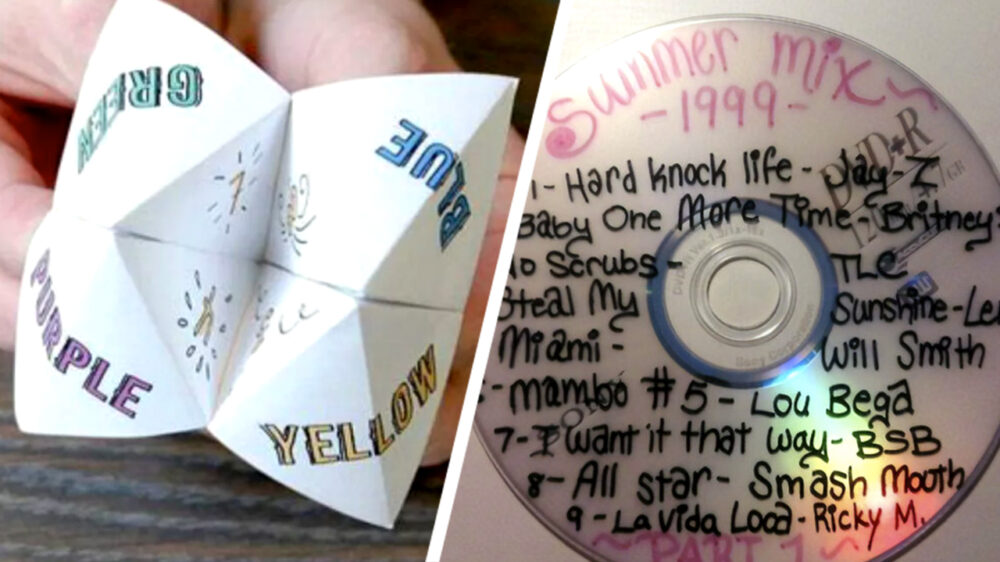 GREEN
BLUE
PURPLE
YELLOW
7
Summer mix
-1999-
1- Hard knock life - Jay-Z
Baby One More Time - Britney
No Scrubs - TLC
Steal My Sunshine - Len
Miami - Will Smith
- mambo #5 - Lou Bega
7- I want it that way - BSB
8- All star - Smash Mouth
9 - La vida Loca - Ricky M.
~PART 1~
DVD+R
Sony Corporation